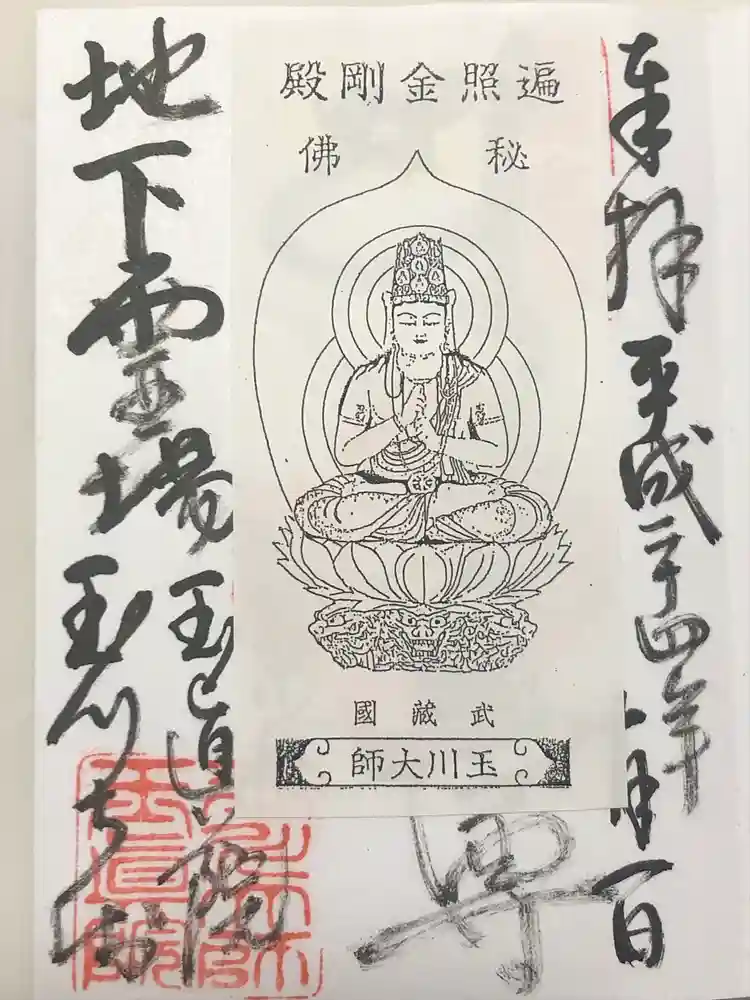 奉拝 平成二十四年
遍照金剛殿
秘佛
武藏國
玉川大師
尊
地下霊場
玉真院
玉川大師